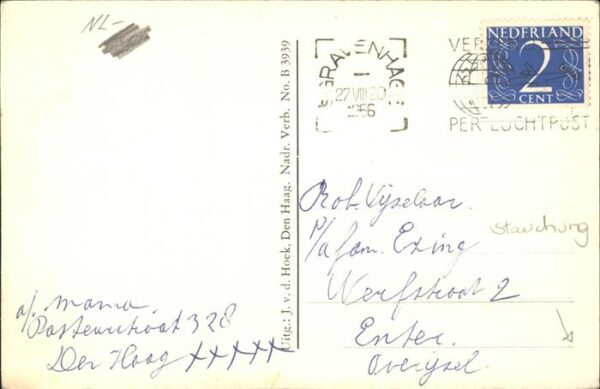 NL-
'SGRAVENHAGE
27 VIII 20
1956
PER LUCHTPOST
NEDERLAND
2
CENT
Uitg.: J. v. d. Hoek, Den Haag. Nadr. Verb. No. B 3939
Rob. Vijselaar.
p/a fam. Exing
Werfstraat 2
Enter.
Overijsel
stauchung
a/. mama.
Pasteurstraat 328
Den Haag xxxxx